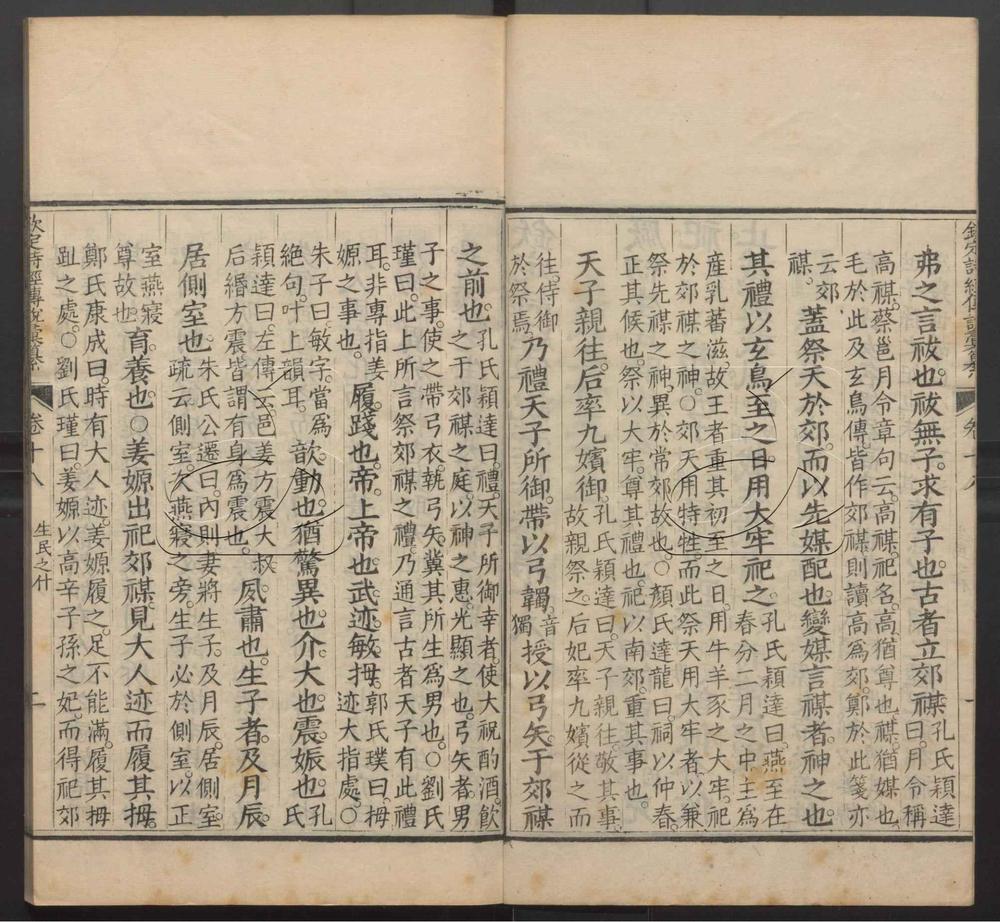 欽定詩經傳說彙纂 卷十八 一
弗之言祓也祓無子求有子也古者立郊禖 孔氏穎達
曰月令稱
高禖蔡邕月令章句云高禖祀名高猶尊也禖猶媒也
毛於此及玄鳥傳皆作郊禖則讀高為郊鄭於此箋亦
云郊
禖 蓋祭天於郊而以先媒配也變媒言禖者神之也
其禮以玄鳥至之日用大牢祀之 孔氏穎達曰燕至在
春分二月之中主為
產乳蕃滋故王者重其初至之日用牛羊豕之大牢祀
於郊禖之神○郊天用特牲而此祭天用大牢者以兼
祭先禖之神異於常郊故也○顏氏達龍曰祠以仲春
正其候也祭以大牢尊其禮也祀以南郊重其事也
天子親往后率九嬪御 孔氏穎達曰天子親往敬其事
故親祭之后妃率九嬪從之而
往侍御
於祭焉 乃禮天子所御帶以弓韣 音
獨 授以弓矢于郊禖
之前也 孔氏穎達曰禮天子所御幸者使大祝酌酒飲
之于郊禖之庭以神之惠光顯之也弓矢者男
子之事使之帶弓衣執弓矢冀其所生為男也○劉氏
瑾曰此上所言祭郊禖之禮乃通言古者天子有此禮
耳非專指姜
嫄之事也 履踐也帝上帝也武迹敏拇 郭氏璞曰拇
迹大指處○
朱子曰敏字當為
絕句叶上韻耳 歆動也猶驚異也介大也震娠也 孔氏
穎達曰左傳云邑姜方震大叔
后緡方震皆謂有身為震也 夙肅也生子者及月辰
居側室也 朱氏公遷曰內則妻將生子及月辰居側室
疏云側室次燕寢之旁生子必於側室以正
室燕寢
尊故也 育養也○姜嫄出祀郊禖見大人迹而履其拇
鄭氏康成曰時有大人迹姜嫄履之足不能滿履其拇
趾之處○劉氏瑾曰姜嫄以高辛子孫之妃而得祀郊
欽定詩經傳說彙纂 卷十八 生民之什 二